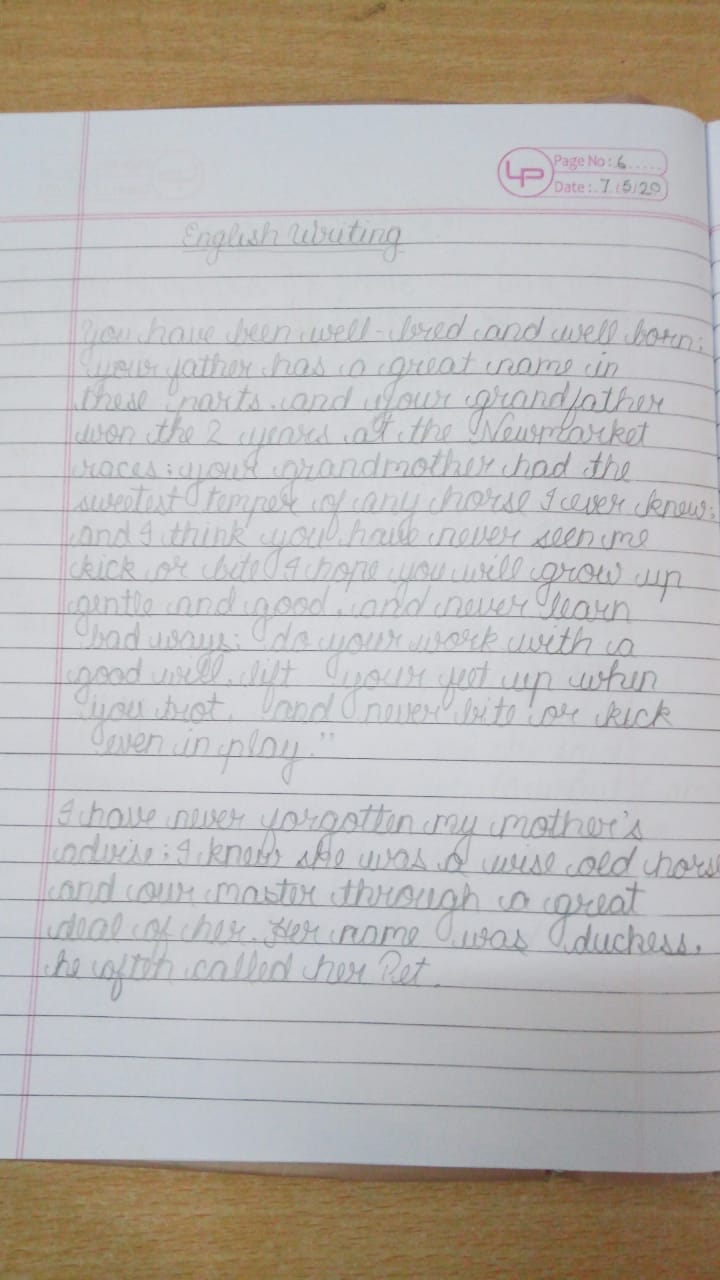 LP
Page No: 6
Date: 7/5/20
English Writing
you have been well-bred and well born;
your father has a great name in
these parts. and your grandfather
won the 2 years at the Newmarket
races; your grandmother had the
sweetest temper of any horse I ever knew;
and I think you have never seen me
kick or bite I hope you will grow up
gentle and good. and never learn
bad ways; do your work with a
good will. lift your feet up when
you trot. and never bite or kick
even in play."
I have never forgotten my mother's
advise; I knew she was a wise old horse
and our master through a great
deal of her. Her name was duchess.
he often called her Pet.